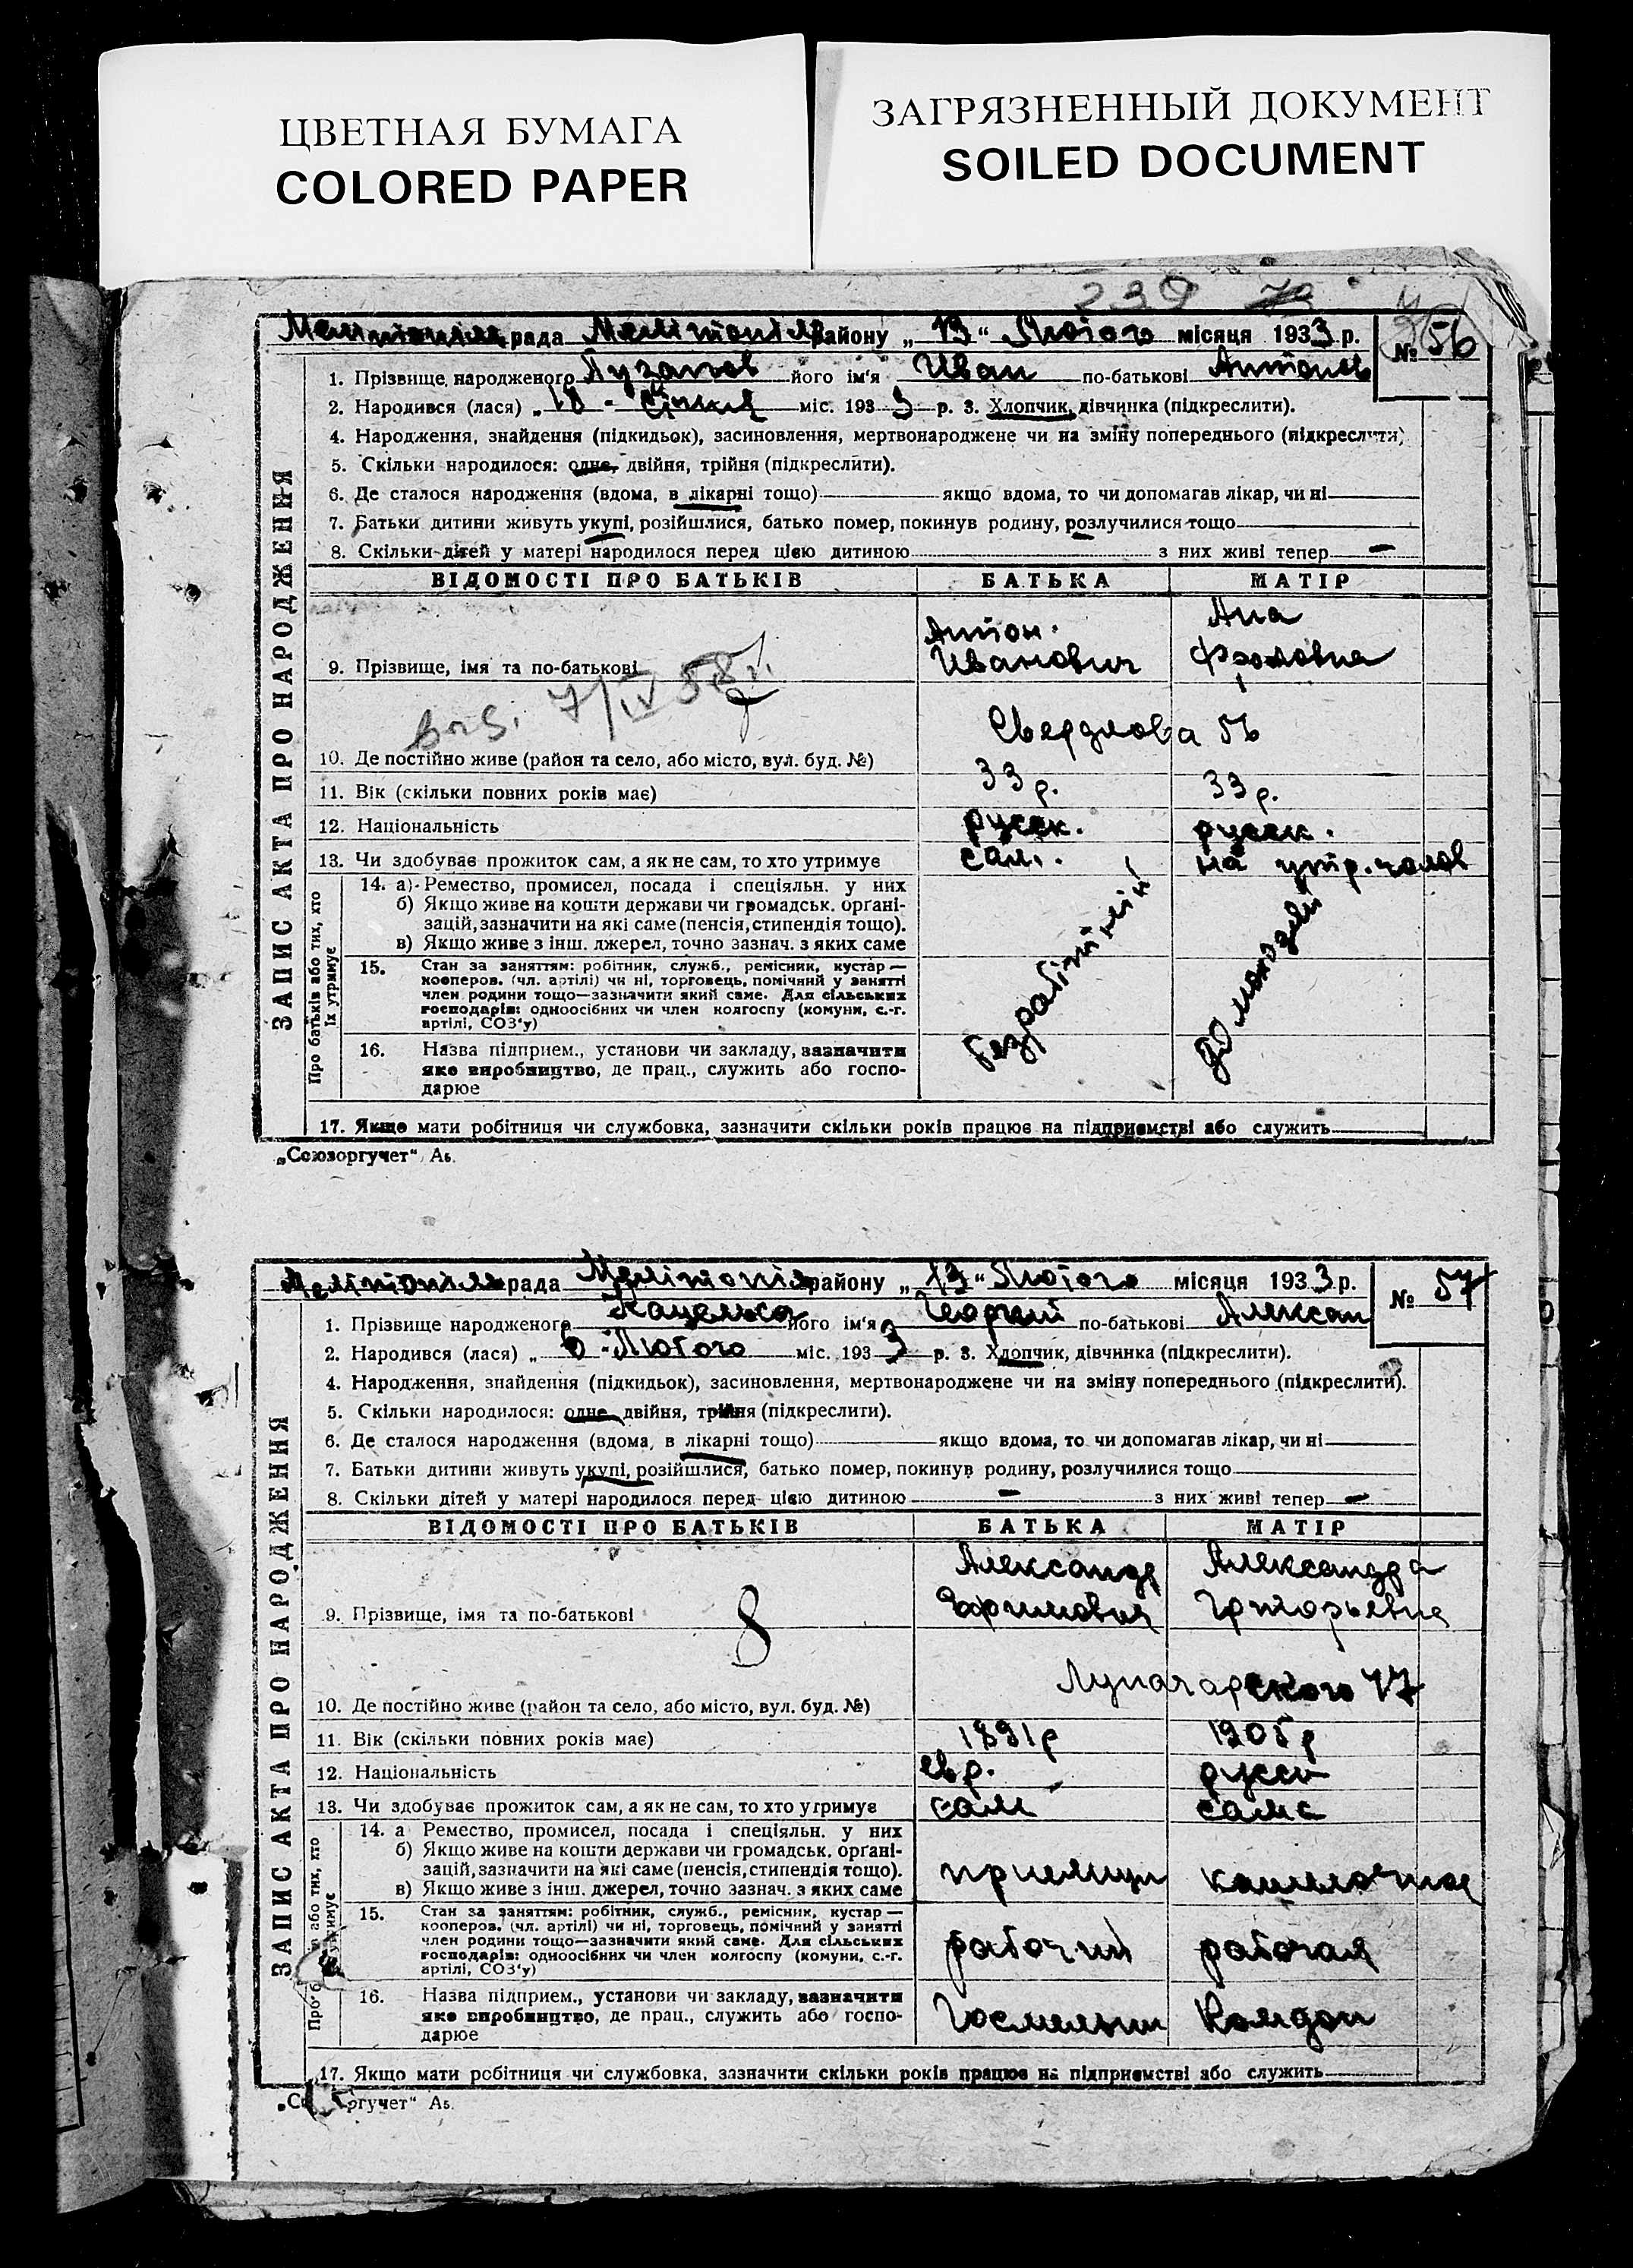 ЦВЕТНАЯ БУМАГА
COLORED PAPER
ЗАГРЯЗНЕННЫЙ ДОКУМЕНТ
SOILED DOCUMENT
239
рада Мелітопіль району „13“ Лютого місяця 1933 р. № 56
ЗАПИС АКТА ПРО НАРОДЖЕННЯ
1. Прізвище народженого Лузанов його ім'я Иван по-батькові Антонов
2. Народився (лася) „18 - Січня міс. 1933 р. 3. Хлопчик, дівчинка (підкреслити).
4. Народження, знайдення (підкидьок), засиновлення, мертвонароджене чи на зміну попереднього (підкреслити)
5. Скільки народилося: одне, двійня, трійня (підкреслити).
6. Де сталося народження (вдома, в лікарні тощо) якщо вдома, то чи допомагав лікар, чи ні
7. Батьки дитини живуть укупі, розійшлися, батько помер, покинув родину, розлучилися тощо
8. Скільки дітей у матері народилося перед цією дитиною з них живі тепер —
ВІДОМОСТІ ПРО БАТЬКІВ БАТЬКА МАТІР
Антон Ана
9. Прізвище, імя та по-батькові Иванович Фроловна
7/IV 58 г.
Свердлова 56
10. Де постійно живе (район та село, або місто, вул. буд. №)
11. Вік (скільки повних років має) 33 р. 33 р.
12. Національність русск. русск.
13. Чи здобуває прожиток сам, а як не сам, то хто утримує сам. на утр. чолов
Про батьків або тих, хто їх утримує
14. а) Ремество, промисел, посада і спеціяльн. у них
б) Якщо живе на кошти держави чи громадськ. орґані-
зацій, зазначити на які саме (пенсія, стипендія тощо).
в) Якщо живе з інш. джерел, точно зазнач. з яких саме
15. Стан за заняттям: робітник, служб., ремісник, кустар —
кооперов. (чл. артілі) чи ні, торговець, помічний у занятті
член родини тощо—зазначити який саме. Для сільських
господарів: одноосібних чи член колгоспу (комуни, с.-г.
артілі, СОЗ'у)
16. Назва підприєм., установи чи закладу, зазначити
яке виробництво, де прац., служить або госпо-
дарює
17. Якщо мати робітниця чи службовка, зазначити скільки років працює на підприємстві або служить
„Союзоргучет“ А5.
Мелітопіль рада Мелітопіль району „13“ Лютого місяця 1933 р. № 57
ЗАПИС АКТА ПРО НАРОДЖЕННЯ
1. Прізвище народженого його ім'я Георгий по-батькові Алексан
2. Народився (лася) „6 - Лютого міс. 1933 р. 3. Хлопчик, дівчинка (підкреслити).
4. Народження, знайдення (підкидьок), засиновлення, мертвонароджене чи на зміну попереднього (підкреслити).
5. Скільки народилося: одне, двійня, трійня (підкреслити).
6. Де сталося народження (вдома, в лікарні тощо) якщо вдома, то чи допомагав лікар, чи ні
7. Батьки дитини живуть укупі, розійшлися, батько помер, покинув родину, розлучилися тощо
8. Скільки дітей у матері народилося перед цією дитиною — з них живі тепер —
ВІДОМОСТІ ПРО БАТЬКІВ БАТЬКА МАТІР
Александр Александра
9. Прізвище, імя та по-батькові 8 Григорьевна
Луначарского 77
10. Де постійно живе (район та село, або місто, вул. буд. №)
11. Вік (скільки повних років має) 1891р 1905р
12. Національність евр. русск
13. Чи здобуває прожиток сам, а як не сам, то хто утримує сам сама
14. а Ремество, промисел, посада і спеціяльн. у них
б) Якщо живе на кошти держави чи громадськ. орґані-
зацій, зазначити на які саме (пенсія, стипендія тощо).
в) Якщо живе з інш. джерел, точно зазнач. з яких саме
15. Стан за заняттям: робітник, служб., ремісник, кустар —
кооперов. (чл. артілі) чи ні, торговець, помічний у занятті
член родини тощо—зазначити який саме. Для сільських
господарів: одноосібних чи член колгоспу (комуни, с.-г.
артілі, СОЗ'у)
рабочий рабочая
16. Назва підприєм., установи чи закладу, зазначити
яке виробництво, де прац., служить або госпо-
дарює
17. Якщо мати робітниця чи службовка, зазначити скільки років працює на підприємстві або служить
ргучет“ А5.